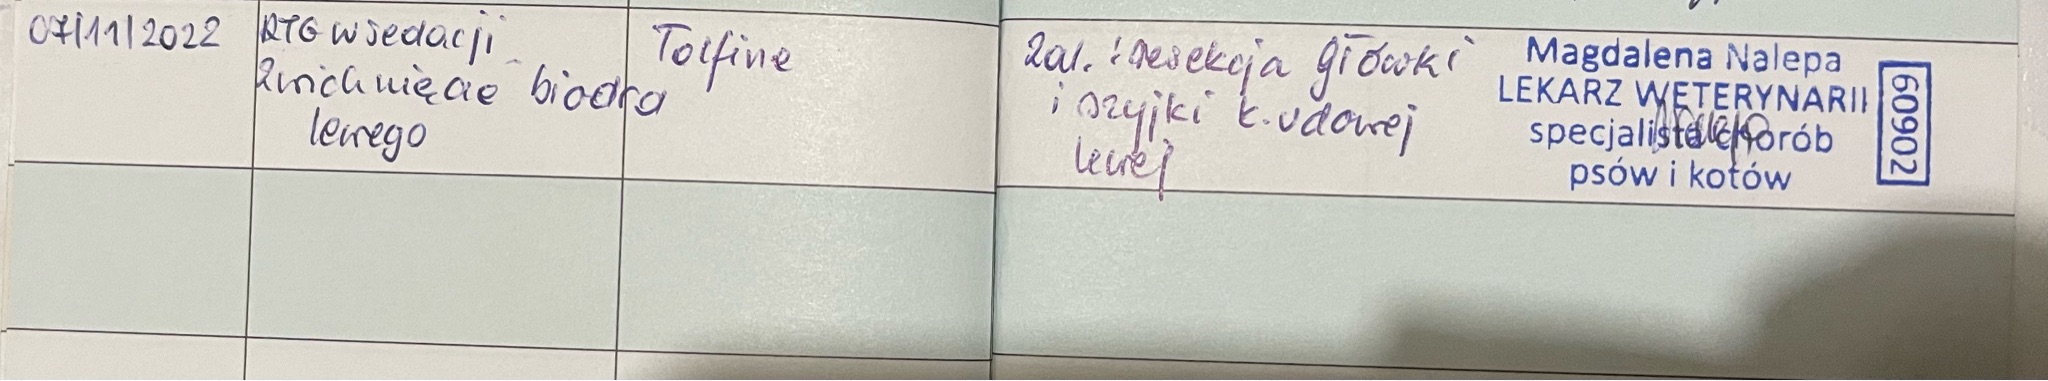 07/11/2022
RTG w sedacji
Zwichnięcie biodra
lewego
Tolfine
Zal. : resekcja główki
i szyjki k. udowej
lewej
Magdalena Nalepa
LEKARZ WETERYNARII
specjalista chorób
psów i kotów
60902